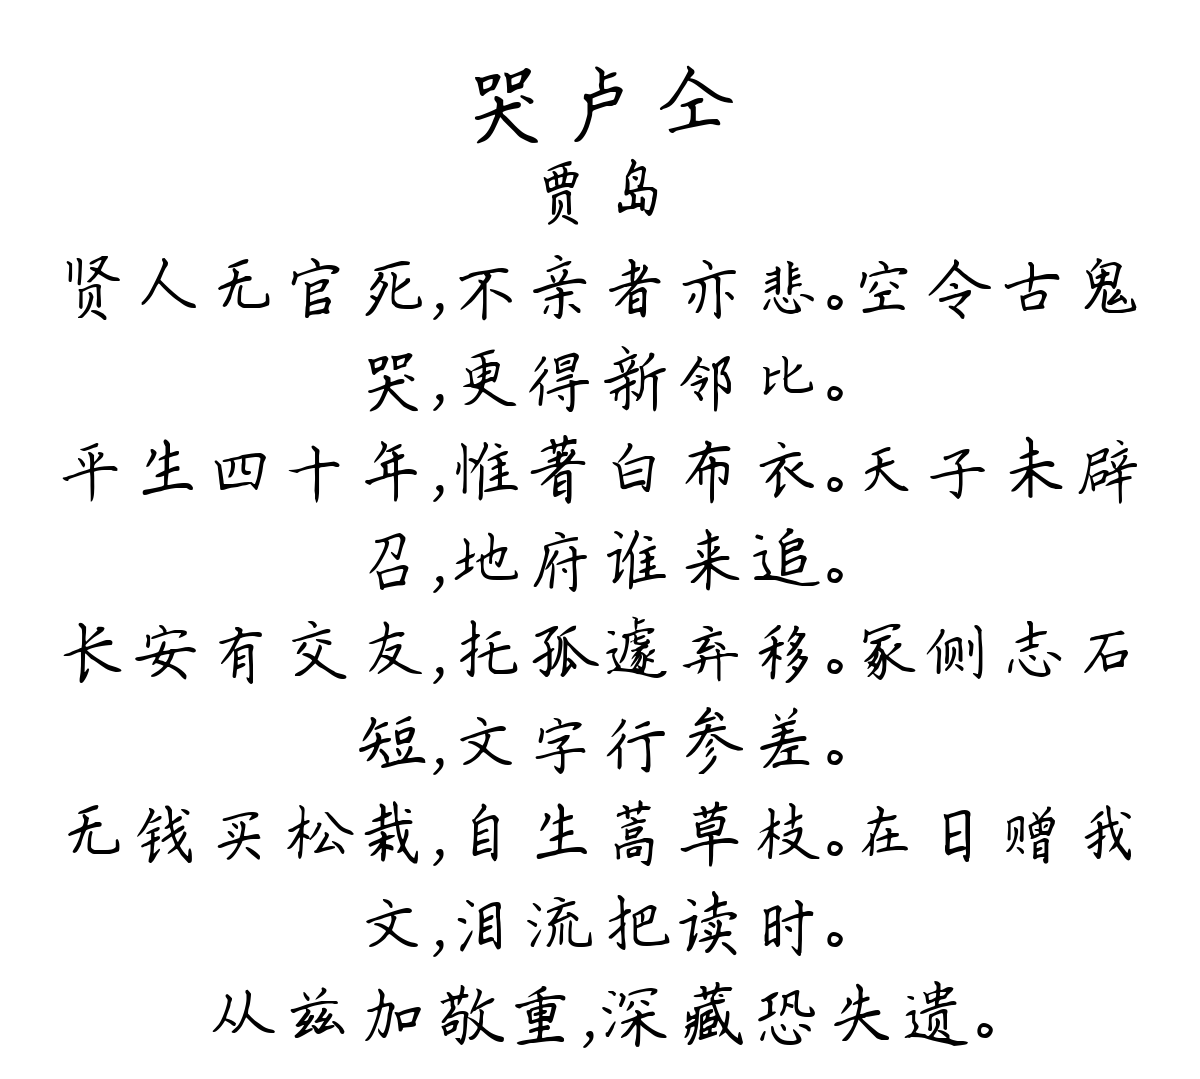 哭卢仝
贾岛
贤人无官死,不亲者亦悲。空令古鬼
哭,更得新邻比。
平生四十年,惟著白布衣。天子未辟
召,地府谁来追。
长安有交友,托孤遽弃移。冢侧志石
短,文字行参差。
无钱买松栽,自生蒿草枝。在日赠我
文,泪流把读时。
从兹加敬重,深藏恐失遗。